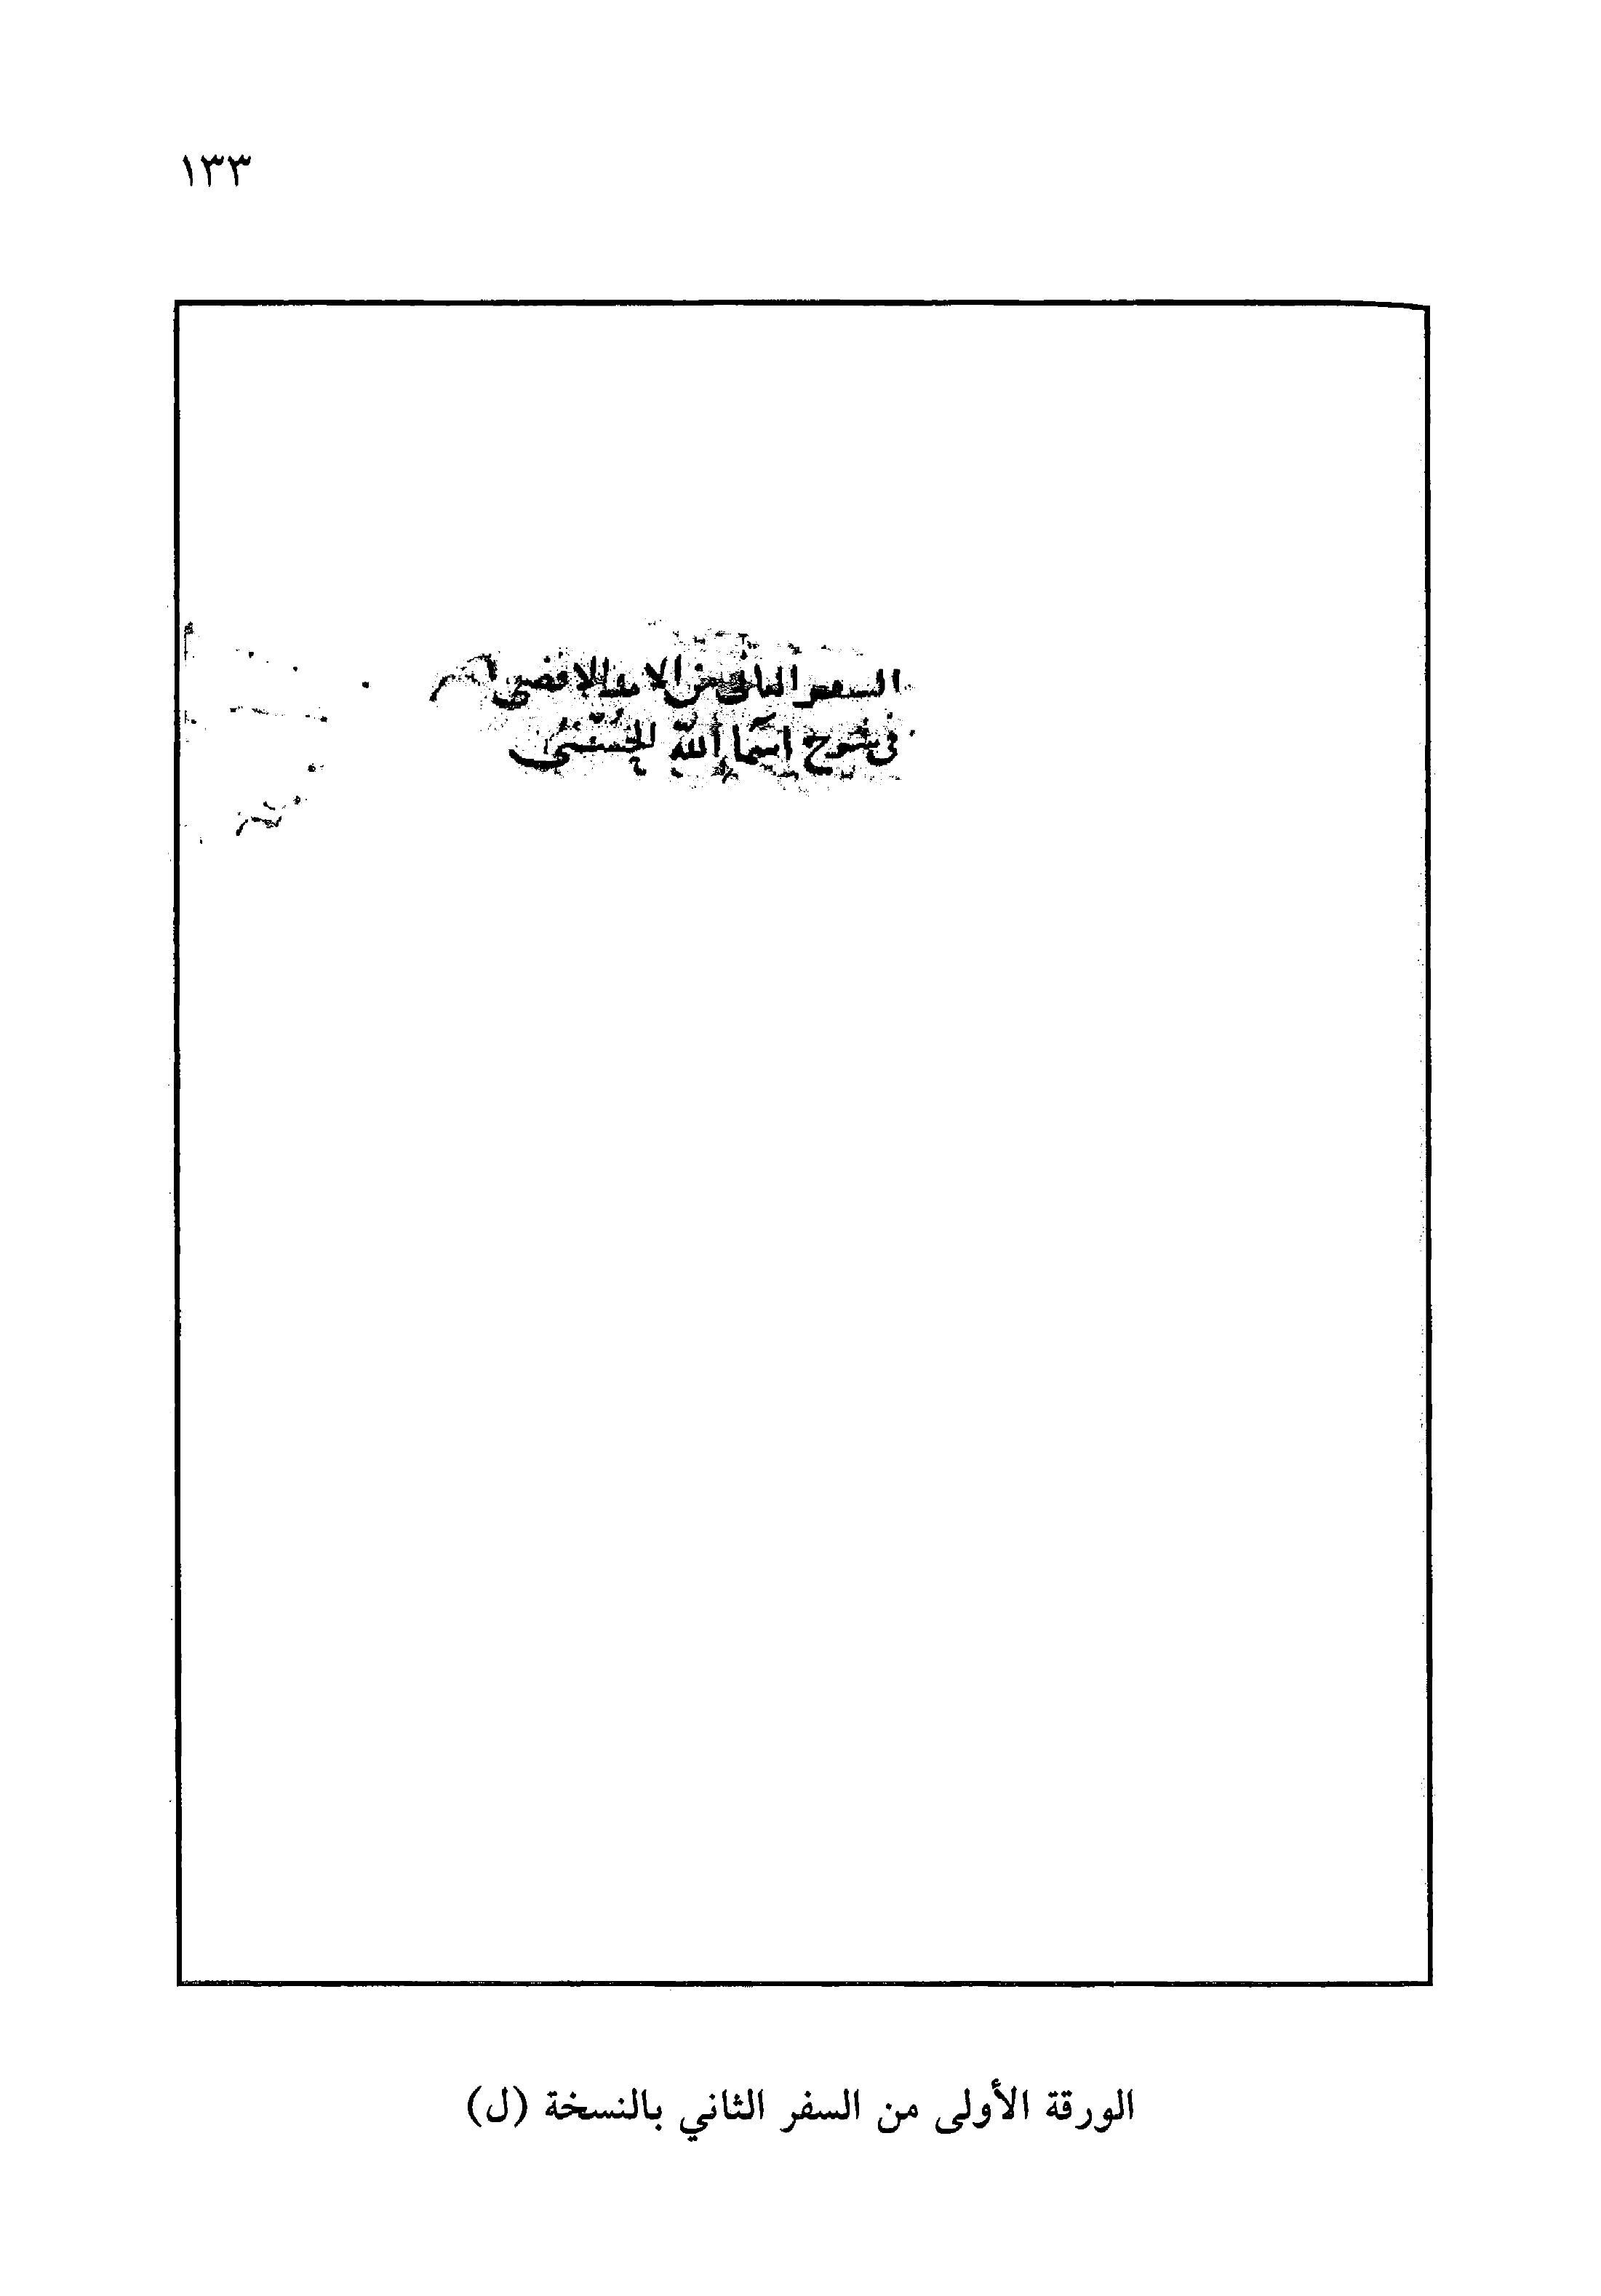 ١٣٣
السفر الثاني من الامد الاقصى
في شرح اسما الله الحسنى
الورقة الأولى من السفر الثاني بالنسخة (ل)